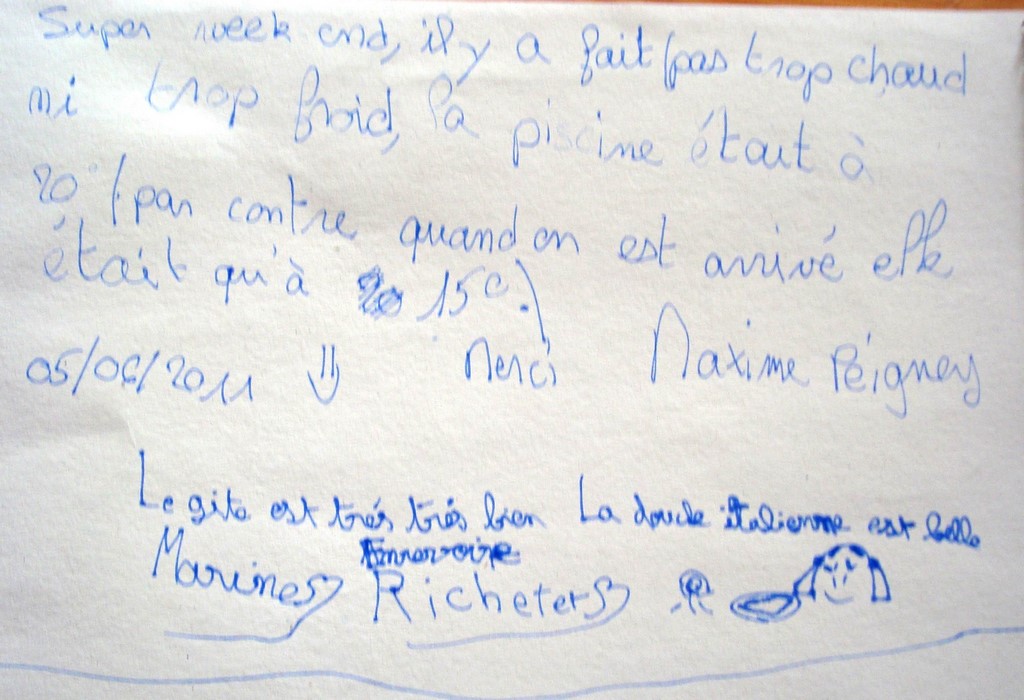 Super week end, il y a fait (pas trop chaud
ni trop froid, la piscine était à
20° (par contre quand on est arrivé elle
était qu'à 15°.)
05/06/2011 Merci Maxime Péigney
Le gite est trés trés bien La douche italienne est belle
Marine Richeter